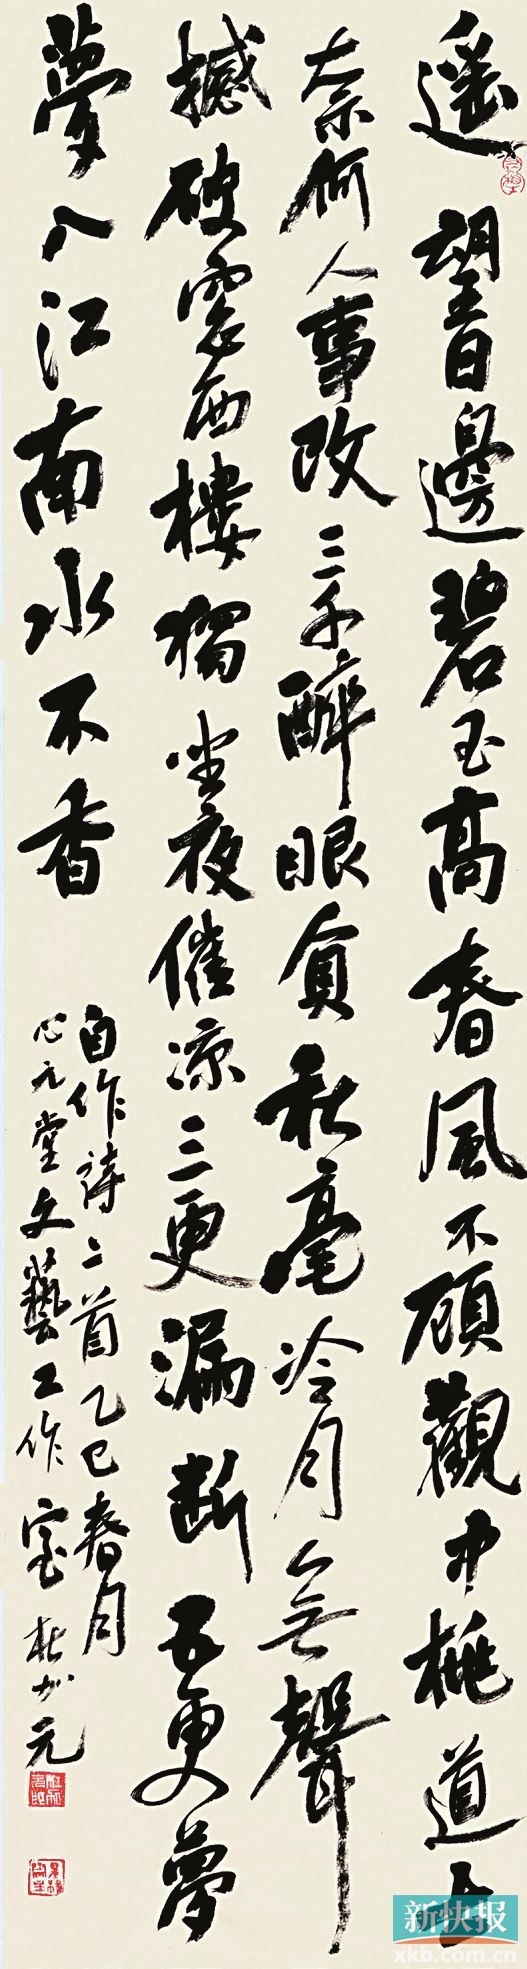 遥望昔邊碧玉高春風不顧觀中桃道士
奈何人事改三千醉眼負秋毫冷月無聲
撼破窗西樓獨坐夜催涼三更漏斷五更夢
夢入江南水不香
自作詩二首乙巳春月
心元堂文藝工作室杜元
新快报
xkb.com.cn